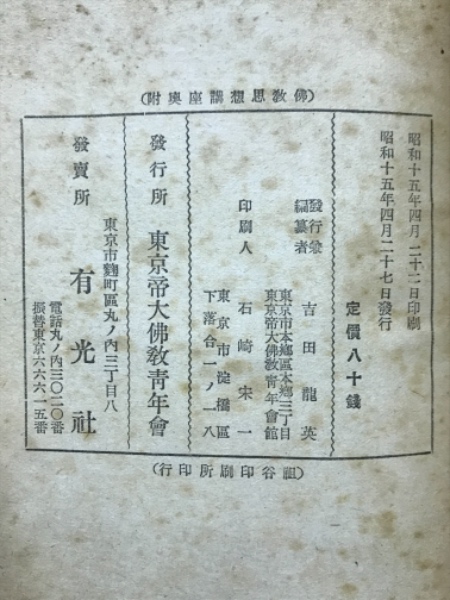 (佛敎思想講座奥附)
昭和十五年四月二十二日印刷
昭和十五年四月二十七日發行
定價八十錢
發行兼
編纂者
東京市本鄕區本鄕三丁目
東京帝大佛敎靑年會館
吉田龍英
印刷人
東京市淀橋區
下落合一ノ一八
石崎宋一
發行所 東京帝大佛敎靑年會
發賣所
東京市麴町區丸ノ內三丁目八
有光社
電話丸ノ內三〇二〇番
振替東京六六六一五番
(谷印刷所印行)